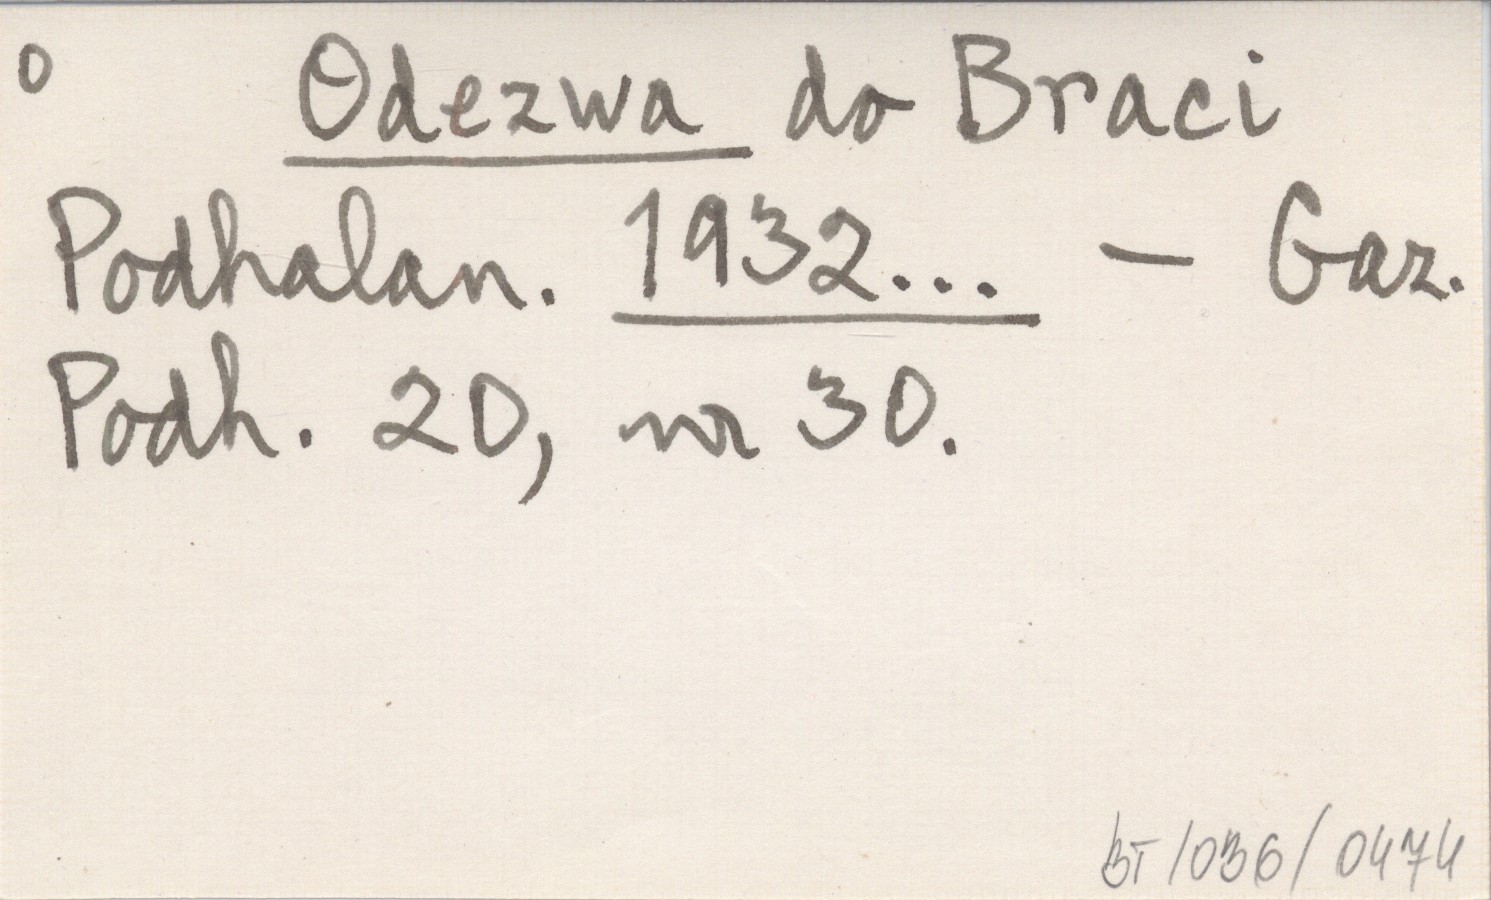 o Odezwa do Braci
Podhalan. 1932... — Gaz.
Podh. 20, nr 30.
BT/036/0474